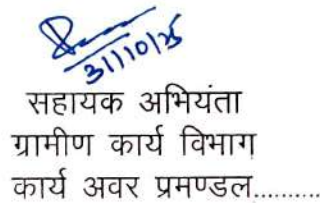 31/10/25
सहायक अभियंता
ग्रामीण कार्य विभाग
कार्य अवर प्रमण्डल..........